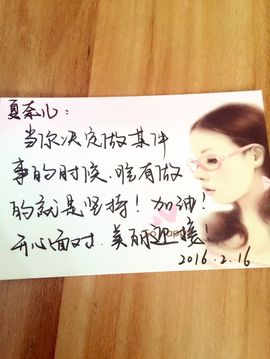 夏奈儿：
当你决定做某件
事的时候、唯有做
的就是坚持！加油！
开心面对、美丽迎接！
2016.2.16